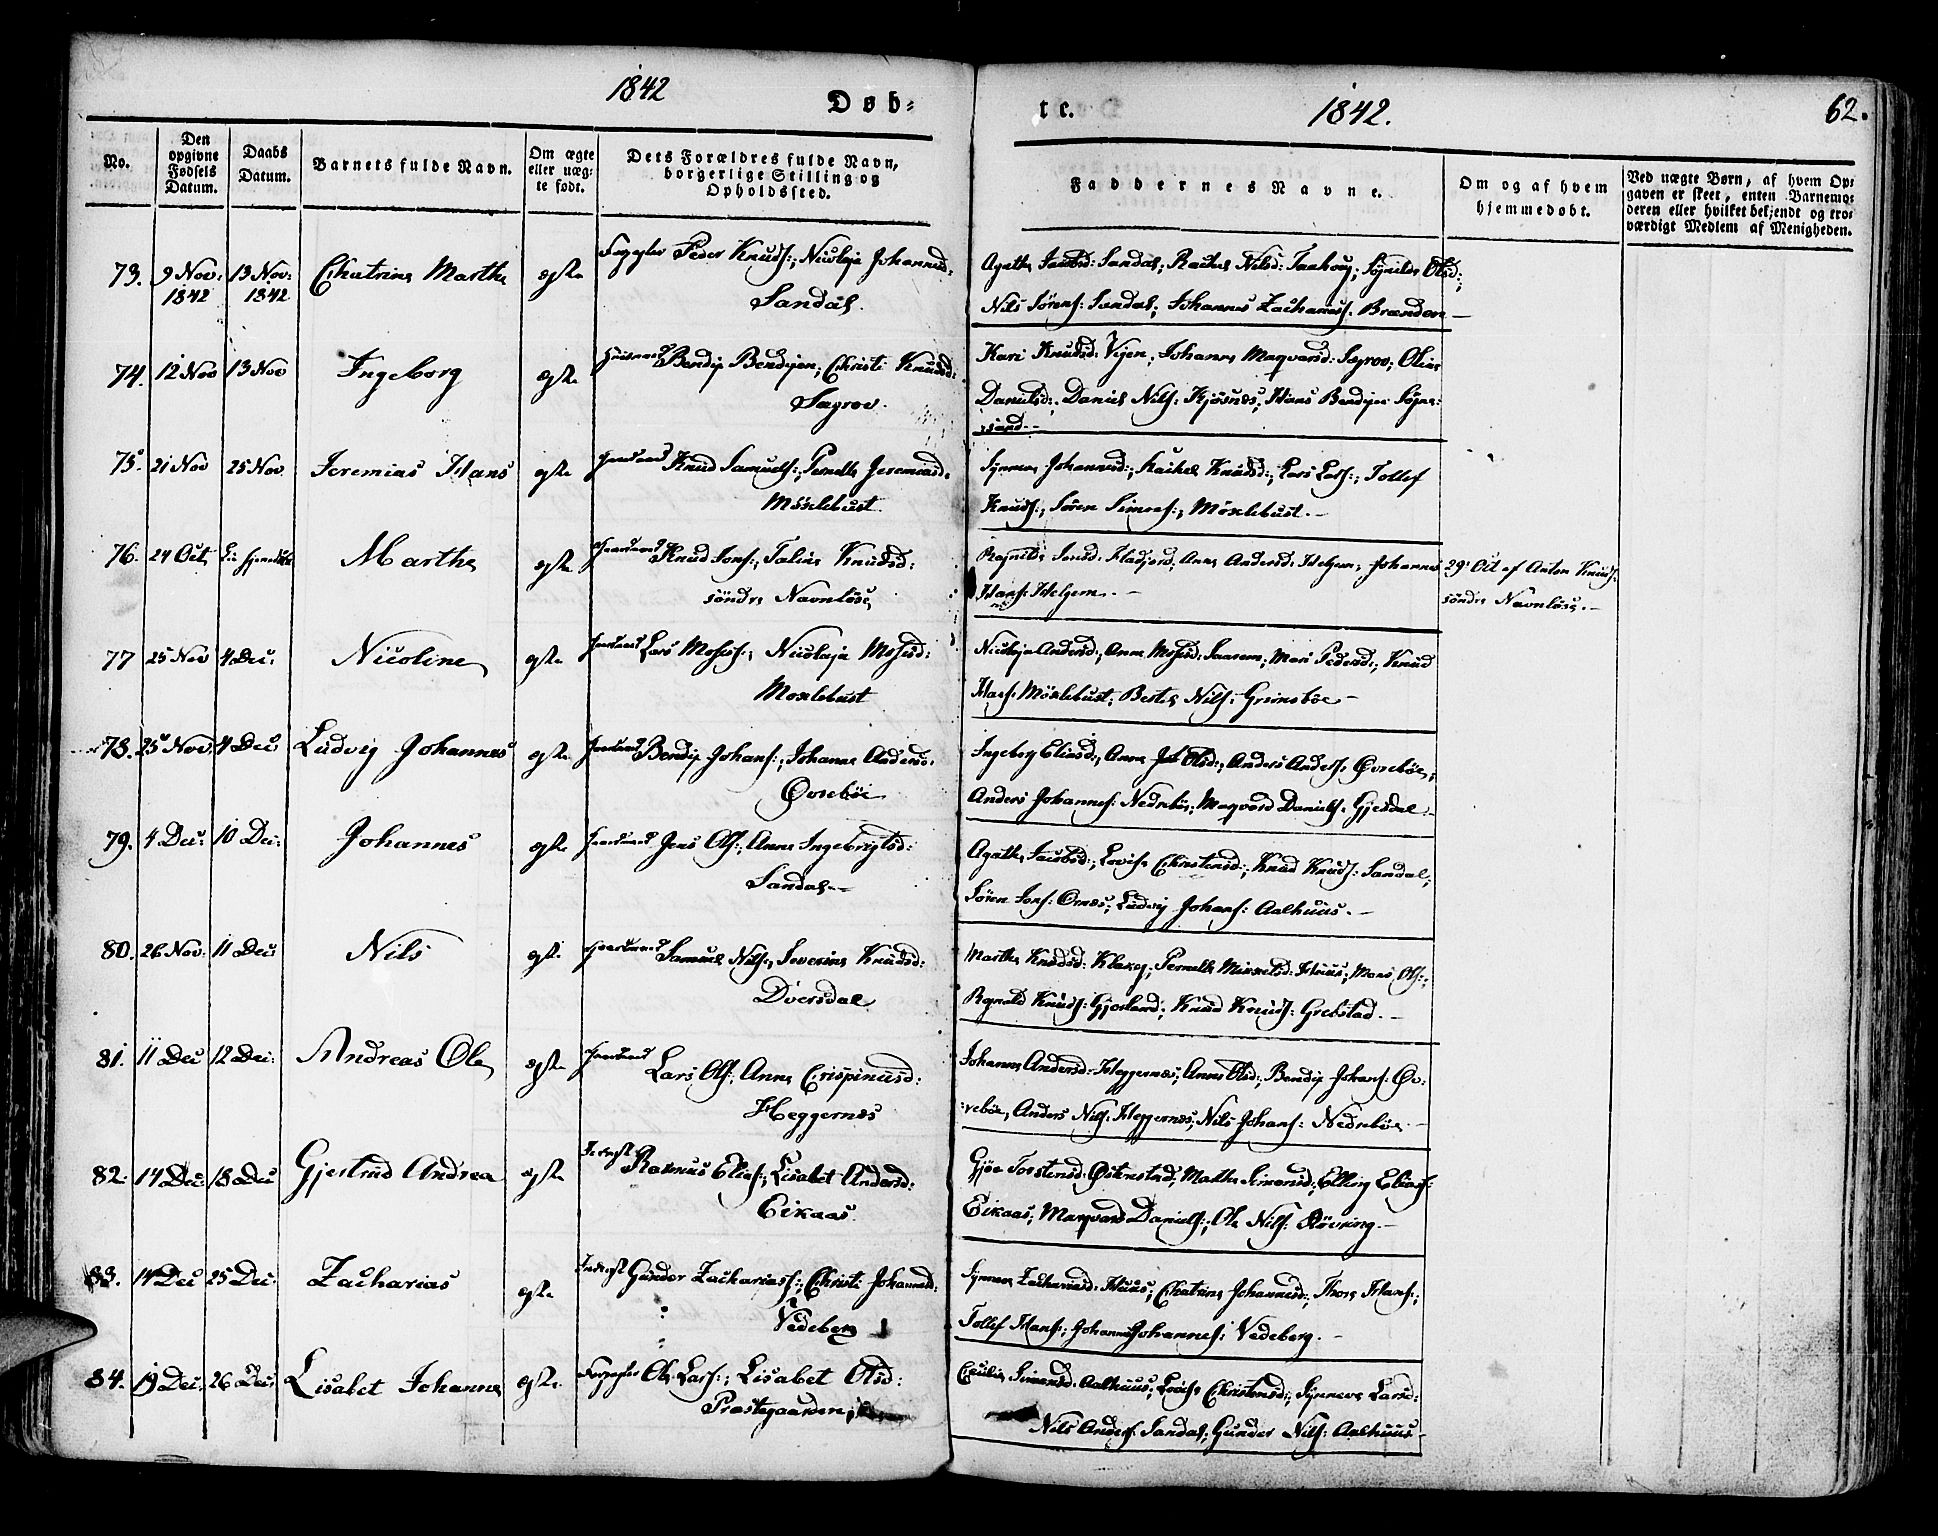 1842
Døb-
te.
1842.
62.
No.
Den opgivne Fødsels Datum.
Daabs Datum.
Barnets fulde Navn.
Om ægte eller uægte født.
Dets Forældres fulde Navn, borgerlige Stilling og Opholdssted.
Faddernes Navne.
Om og af hvem hjemmedøbt.
Ved uægte Børn, af hvem Op-
gaven er skeet, enten Barnemo-
deren eller hvilket bekjendt og tro-
værdigt Medlem af Menigheden.
73. 9 Nov: 1842 13 Nov: 1842 Chatrine Marthe ægte Peder Knuds:, Nicolaja Johannesd:
Sandal.
Agathe Jacobsd: Sandal; Rachel Nilsd: Olsd:;
Nils Sörens: Sandal; Johannes Zacharias: Brandsøe
74. 12 Nov 13 Nov Ingeborg ægte Huusmand Bendix Bendixen; Christi Knudsd:
Sægrov.
Kari Knudsd: Vejen; Johanne Maqvarsd: Sægrov; Oline
Danielsd:. Daniel Nils: Kjösnes; Hans Bendixen Sögne-
sand.
75. 21 Nov 25 Nov Jeremias Hans ægte Knud Samuels:, Pernelle Jeremiasd:
Möxlebust.
Synneve Johannesd:; Rachel Knudsd:; Lars Lars:; Tollef
Knuds:; Sören Simons:; Möxlebust.
76. 24 Oct Marthe ægte Gaardmand Knud Jons:, Taline Knudsd:
söndre Navnløse
Ragnilde Jonsd: Anne Andersd: Helgem; Johannes
Hans: Helgem.
29' Oct af Anton Knuds:
söndre Navnløse.
77 25 Nov 4 Dec: Nicoline ægte Gaardmand Lars Moses:, Nicolaja Mosesd:
Moxlebust
Nicolaja Andersd:, Anne Mosesd: Mari Pedersd:; Knud
Hans: Möxlebust; Bertel Nils: Grimsböe
78. 25 Nov 4 Dec Ludvig Johannes ægte Gaardmand Bendix Johans:, Johanne Andersd:
Øvreböe
Ingeborg Eliasd:, Anne Olsd:, Anders Anders: Øvreböe;
Anders Johannes: Nedreböe; Maqvard Daniels: Gjesdal
79. 4 Dec: 10 Dec: Johannes ægte Gaardmand Jens Ols:, Anne Ingebrigtsd:
Sandal
Agathe Jacobsd:; Lovise Christensd:; Knud Knuds: Sandal;
Sören Jons: Ornæs; Ludvig Johans: Aalhuus.
80. 26 Nov: 11 Dec Nils ægte Gaardmand Samuel Nils:, Severine Knudsd:
Dversdal
Marthe Knudsd: Klakeg; Pernelle Mikkelsd: Huus; Mons Ols:;
Rognald Knuds: Gjerland; Knud Knuds: Grebstad.
81. 11 Dec 12 Dec: Andreas Ole ægte Gaardmand Lars Ols:, Anne Crispinusd:
Heggernæs
Johanne Andersd: Heggernæs; Anne Olsd:; Bendix Johans: Øv-
reböe, Anders Nils: Heggernæs; Nils Johans: Nedreböe
82. 14 Dec: 18 Dec Gjertrud Andrea ægte Inderst Rasmus Elias:, Lisabet Andersd:
Eikaas
Gjøe Torstensd: Østenstad; Marthe Simonsd:; Elling Elias:
Eikaas; Marqvard Daniels:, Ole Nils:
83. 14 Dec 25 Dec: Zacharias ægte Inderst Gunder Zacharias:; Christi Johannesd:
Vedeberg
Synneve Zachariasd: Huus; Chatrine Johannesd:; Thore Hans:;
Tollef Hans:; Johannes Johannes: Vedeberg.
84. 19 Dec: 26 Dec: Lisabet Johanne ægte Ole Lars:; Lisabet Olsd:
Præstegaarden;
Cecilie Simonsd: Aalhuus; Lovise Christensd:; Synneve Larsd:
Nils Anders: Sandal; Gunder Nils: Aalhuus